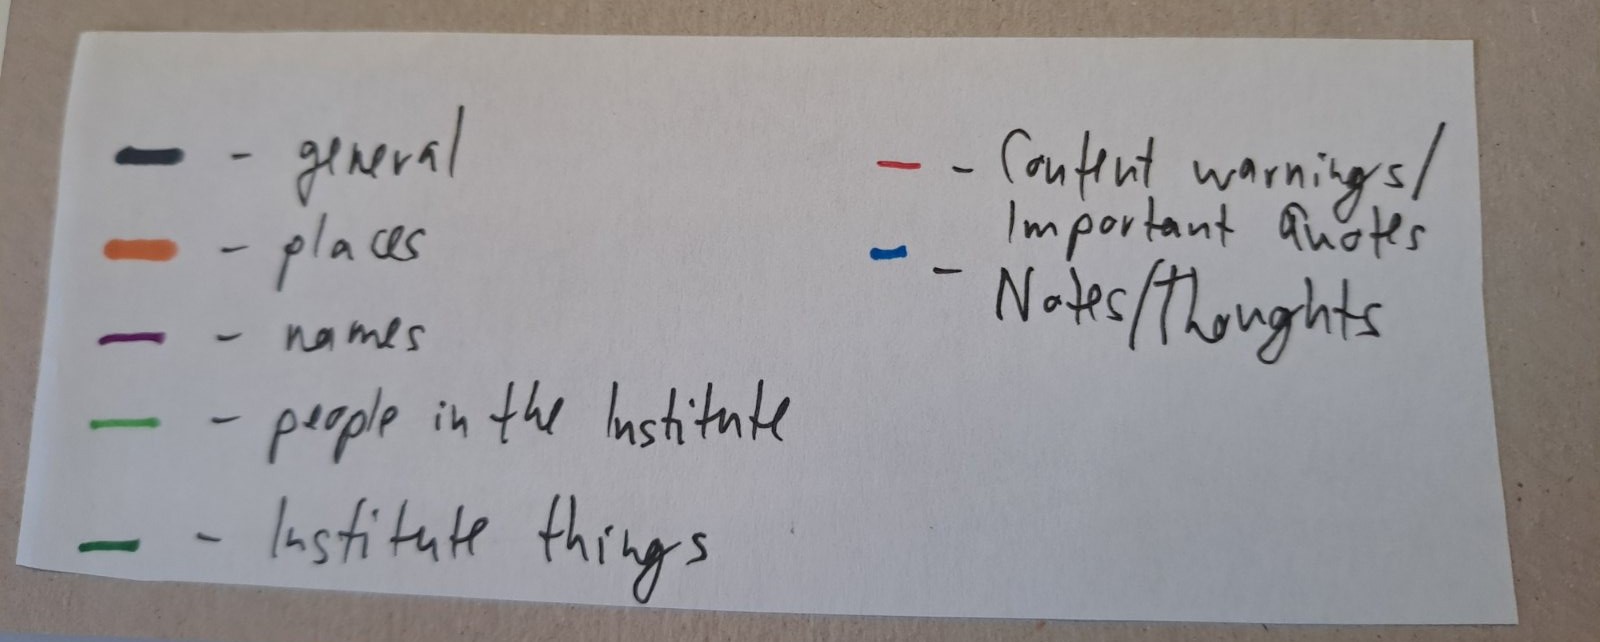 - general
- places
- names
- people in the Institute
- Institute things
- Content warnings/
Important Quotes
- Notes/Thoughts